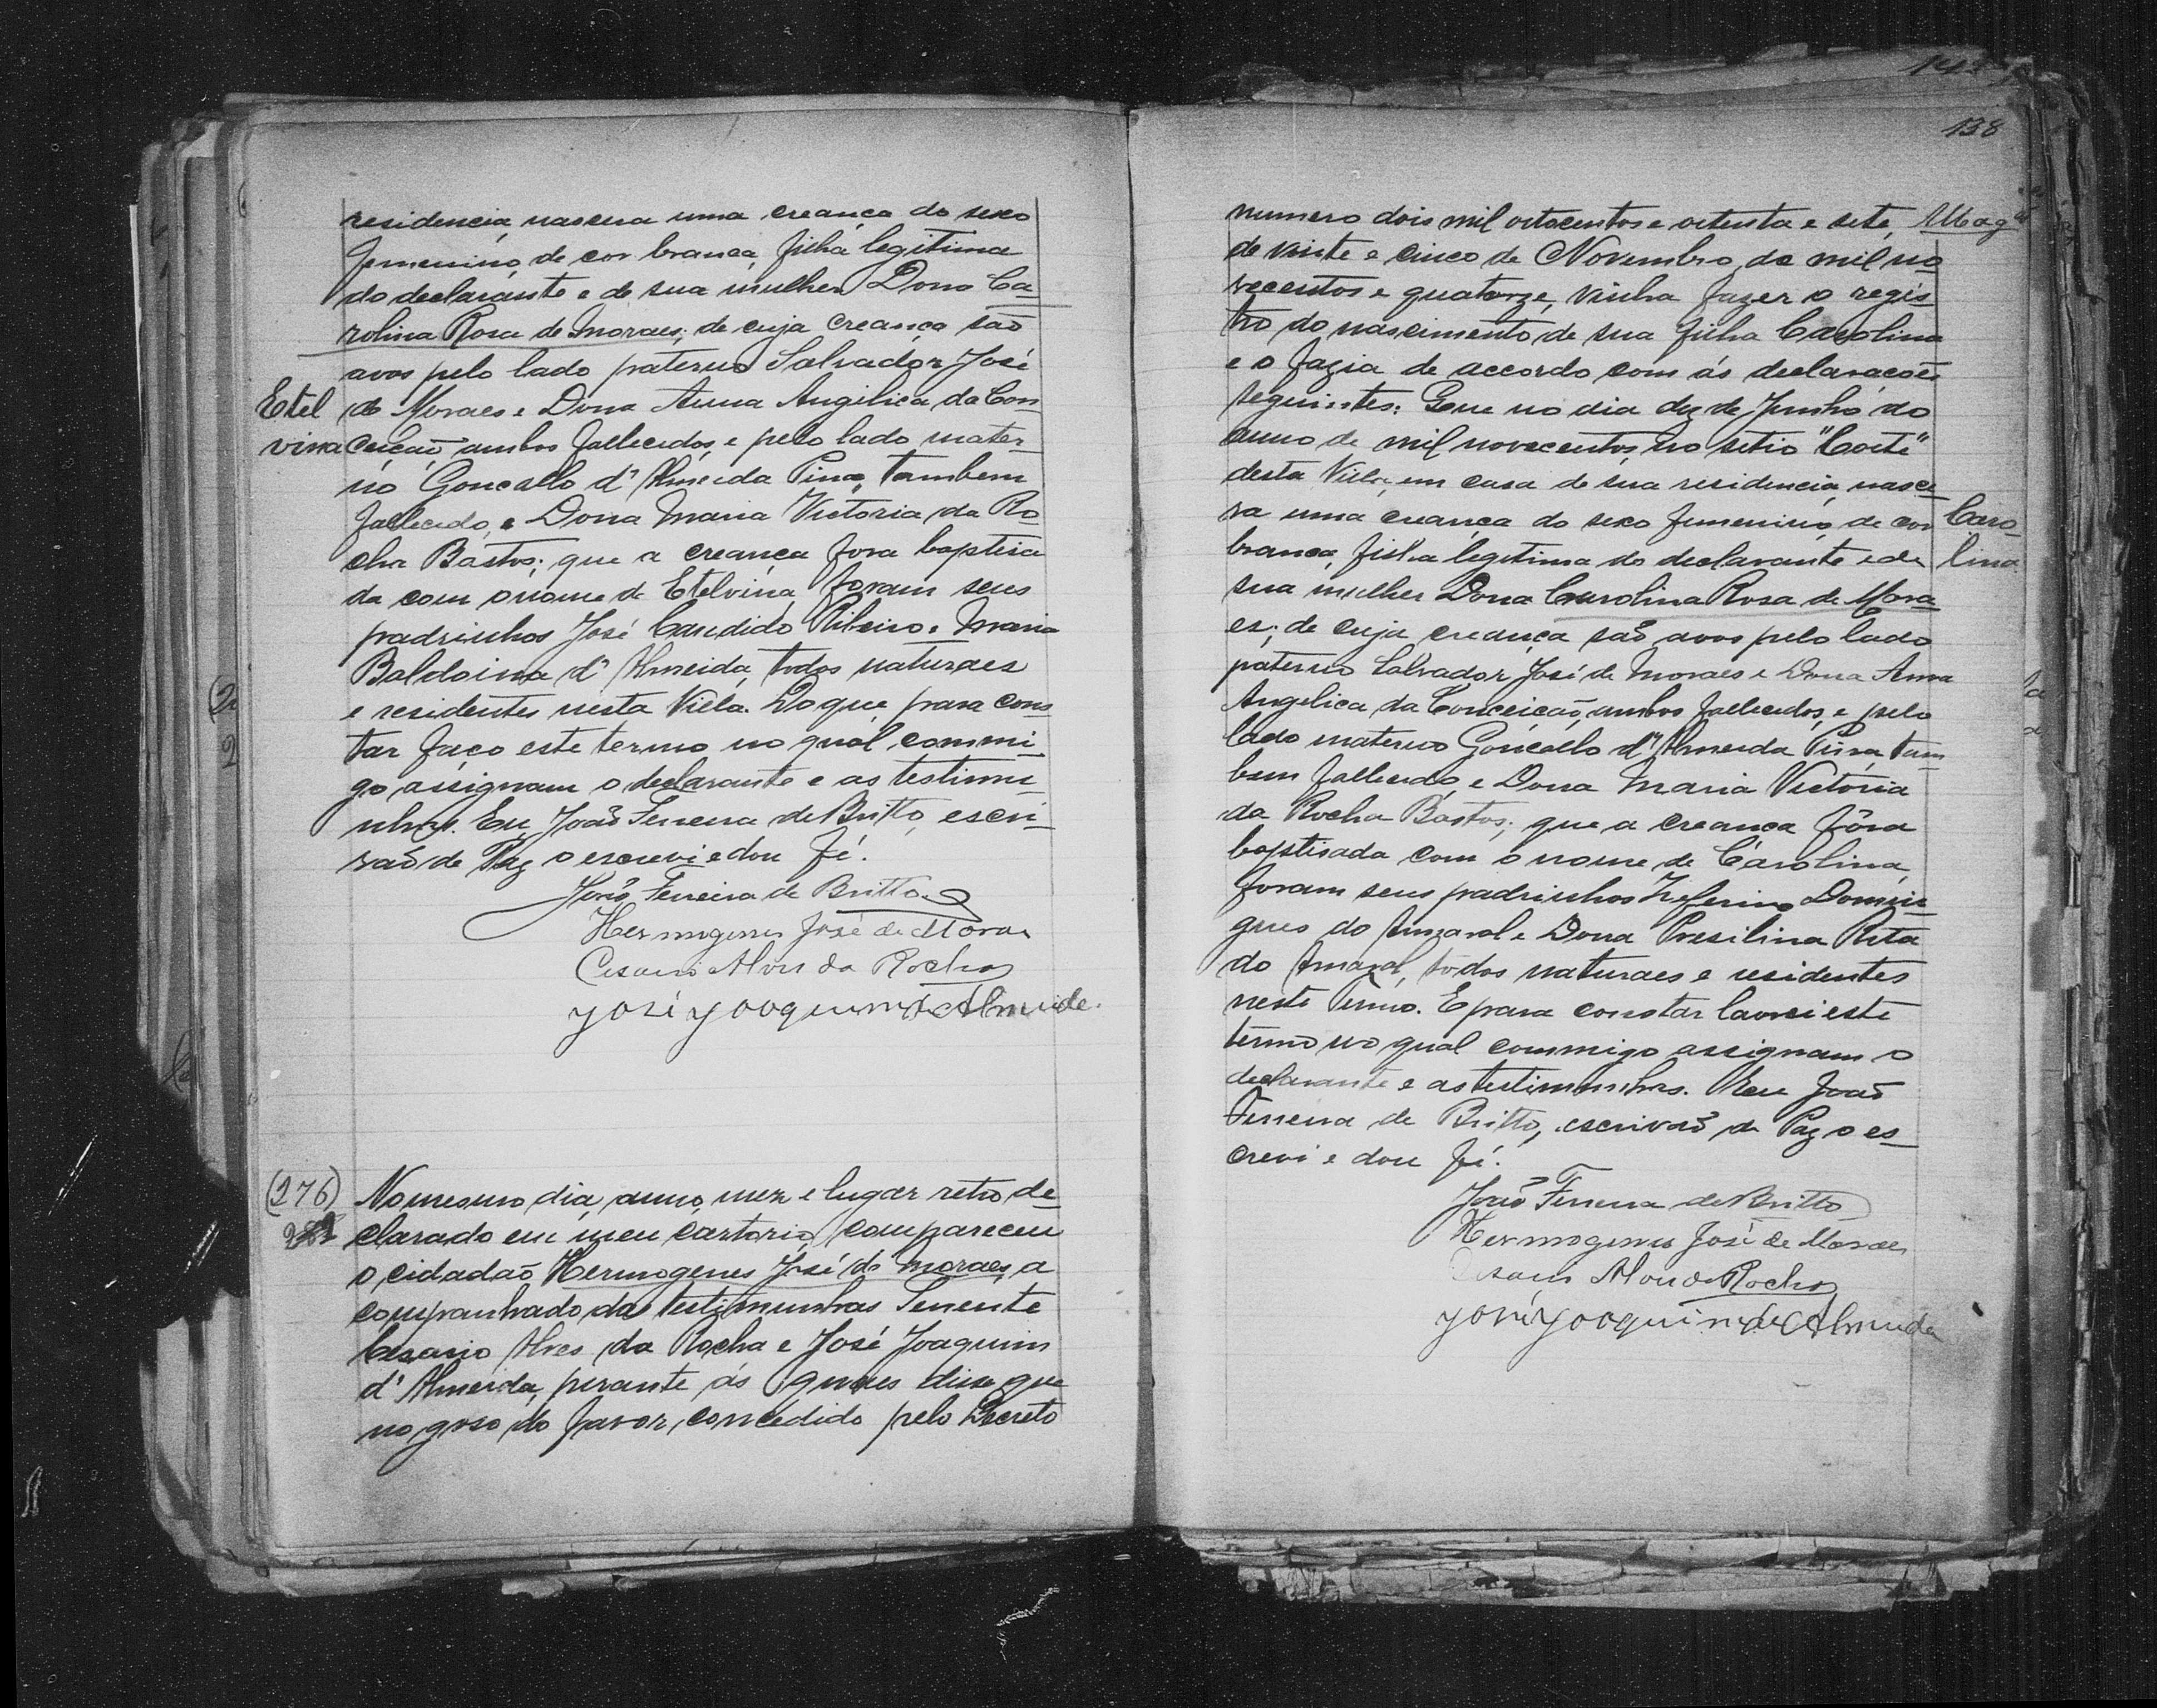 residencia, nascera uma creança do sexo
femenino, de cor branca, filha legitima
do declarante e de sua mulher Dona Ca-
rolina Rosa de Moraes; de cuja creança são
avos pelo lado paterno Salvador José
Etel
vina
de Moraes e Dona Anna Angelica da Con-
ceição, ambos fallecidos, e pelo lado mater-
no Goncallo d'Almeida Pina, tambem
fallecido, e Dona Maria Victoria da Ro-
cha Bastos; que a creança fora baptisa
da com o nome de Etelvina, foram seus
padrinhos José Candido Ribeiro e Maria
Baldoina d'Almeida, todos naturaes
e residentes nesta Villa. Do que para cons
tar faço este termo no qual commi-
go assignam o declarante e as testimu-
nhas. Eu, João Ferreira de Britto, escri-
vão de Paz o escrevi e dou fé.
João Ferreira de Britto
Hermogenes José de Moraes
Cesario Alves da Rocha
José Joaquim d'Almeida.
(276)
No mesmo dia, anno, mez e lugar retro de-
clarado em meu cartorio, compareceu
o cidadão Hermogenes José de Moraes, a
companhado das testimunhas Tenente
Cesario Alves da Rocha e José Joaquim
d'Almeida, perante ás quaes disse que
no goso do favor, concedido pelo Decreto
138
numero dois mil oitocentos e oitenta e sete,
de vinte e cinco de Novembro de mil no-
vecentos e quatorze, vinha fazer o regis-
tro do nascimento de sua filha Carolina
e o fazia de accordo com ás declarações
seguintes: Que no dia dez de Junho do
anno de mil novecentos, no sitio "Coité"
desta Villa, em casa de sua residencia, nasce-
ra uma creança do sexo femenino, de cor
Caro-
lina
branca, filha legitima do declarante e de
sua mulher Dona Carolina Rosa de Mora-
es; de cuja creança são avos pelo lado
paterno Salvador José de Moraes e Dona Anna
Angelica da Conceição, ambos fallecidos, e pelo
lado materno Goncallo d'Almeida Pina, tam-
bem fallecido, e Dona Maria Victoria
da Rocha Bastos; que a creança fôra
baptisada com o nome de Carolina,
foram seus padrinhos Zeferino Domin-
gues do Amaral e Dona Presilina Rita
do Amaral, todos naturaes e residentes
neste Termo. E para constar lavrei este
termo no qual commigo assignam o
declarante e as testimunhas. Eu João
Ferreira de Britto, escrivão de Paz o es-
crevi e dou fé.
João Ferreira de Britto
Hermogenes José de Moraes
Cesario Alves da Rocha
José Joaquim d'Almeida